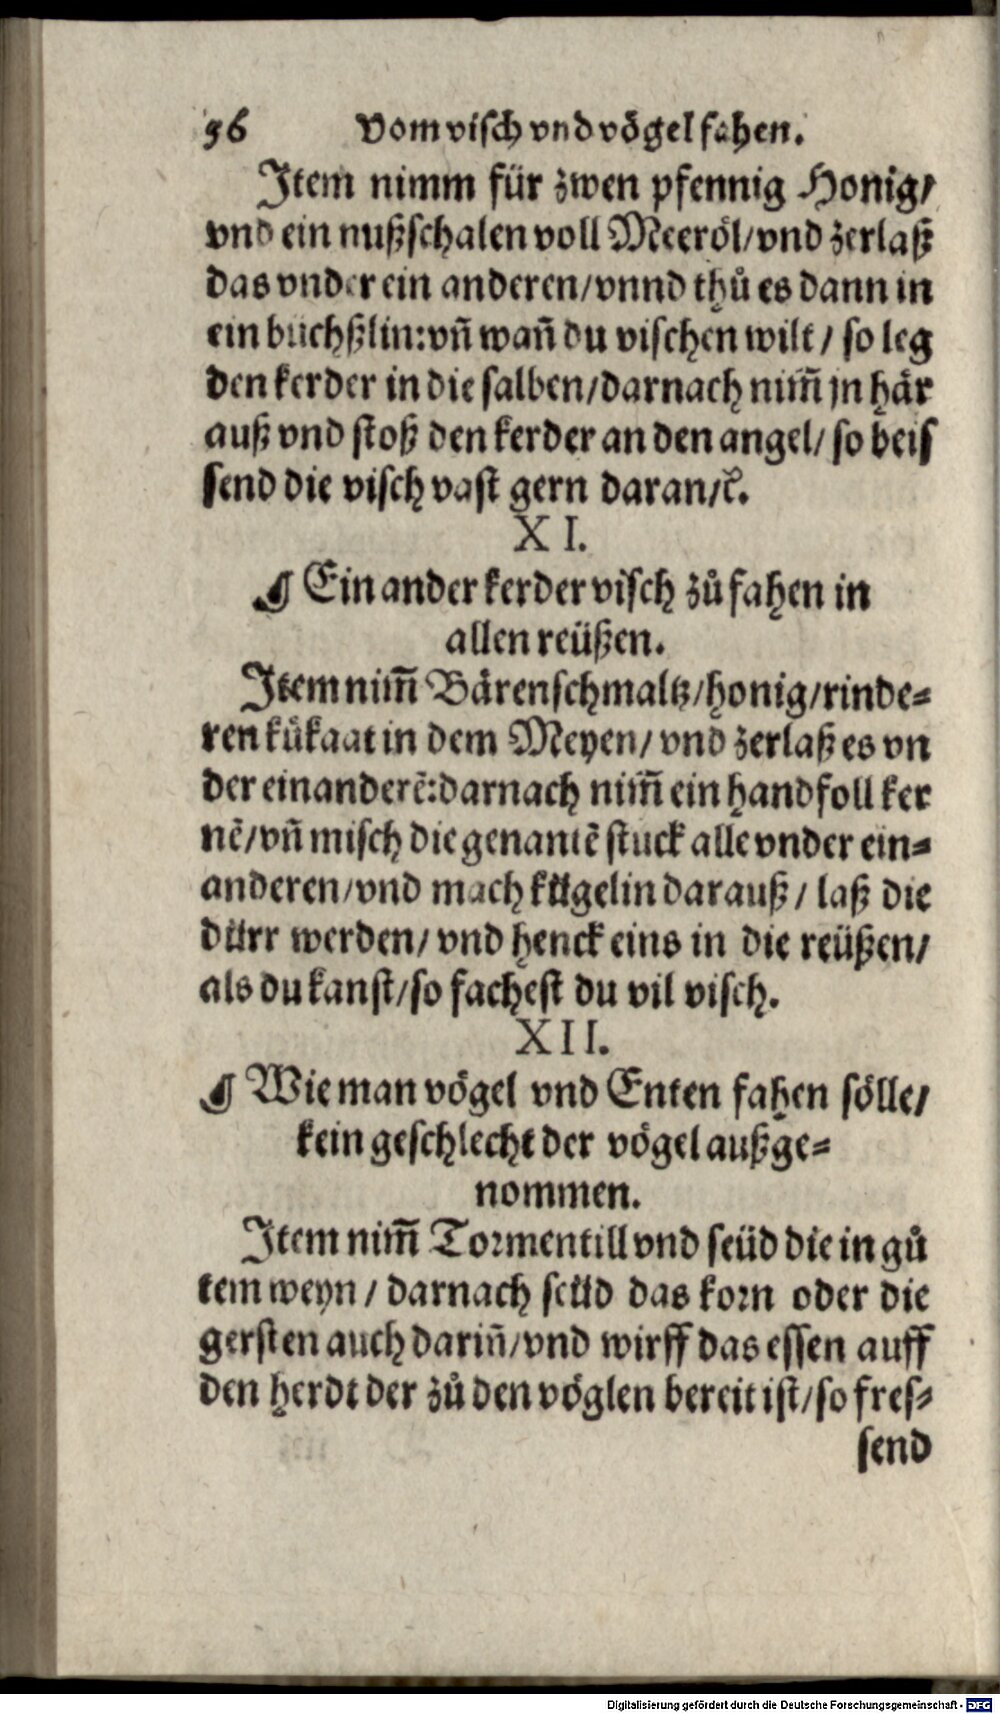 96 Vom visch vnd vögel fahen.
Item nimm für zwen pfennig Honig/
vnd ein nußschalen voll Meeröl/vnd zerlaß
das vnder ein anderen/vnnd thů es dann in
ein büchßlin:vñ wañ du vischen wilt/ so leg
den kerder in die salben/darnach nim̃ jn här
auß vnd stoß den kerder an den angel/ so beis
send die visch vast gern daran/ꝛc.
XI.
¶ Ein ander kerder visch zů fahen in
allen reüßen.
Item nim̃ Bärenschmaltz/honig/rinde⸗
ren kůkaat in dem Meyen/ vnd zerlaß es vn
der einanderẽ:darnach nim̃ ein handfoll ker
nẽ/vñ misch die genantẽ stuck alle vnder ein⸗
anderen/vnd mach kügelin darauß/ laß die
dürr werden/ vnd henck eins in die reüßen/
als du kanst/so fachest du vil visch.
XII.
¶ Wie man vögel vnd Enten fahen sölle/
kein geschlecht der vögel außge⸗
nommen.
Item nim̃ Tormentill vnd seüd die in gů
tem weyn/ darnach seüd das korn oder die
gersten auch dariñ/vnd wirff das essen auff
den herdt der zů den vöglen bereit ist/so fres⸗
send
Digitalisierung gefördert durch die Deutsche Forschungsgemeinschaft - DFG